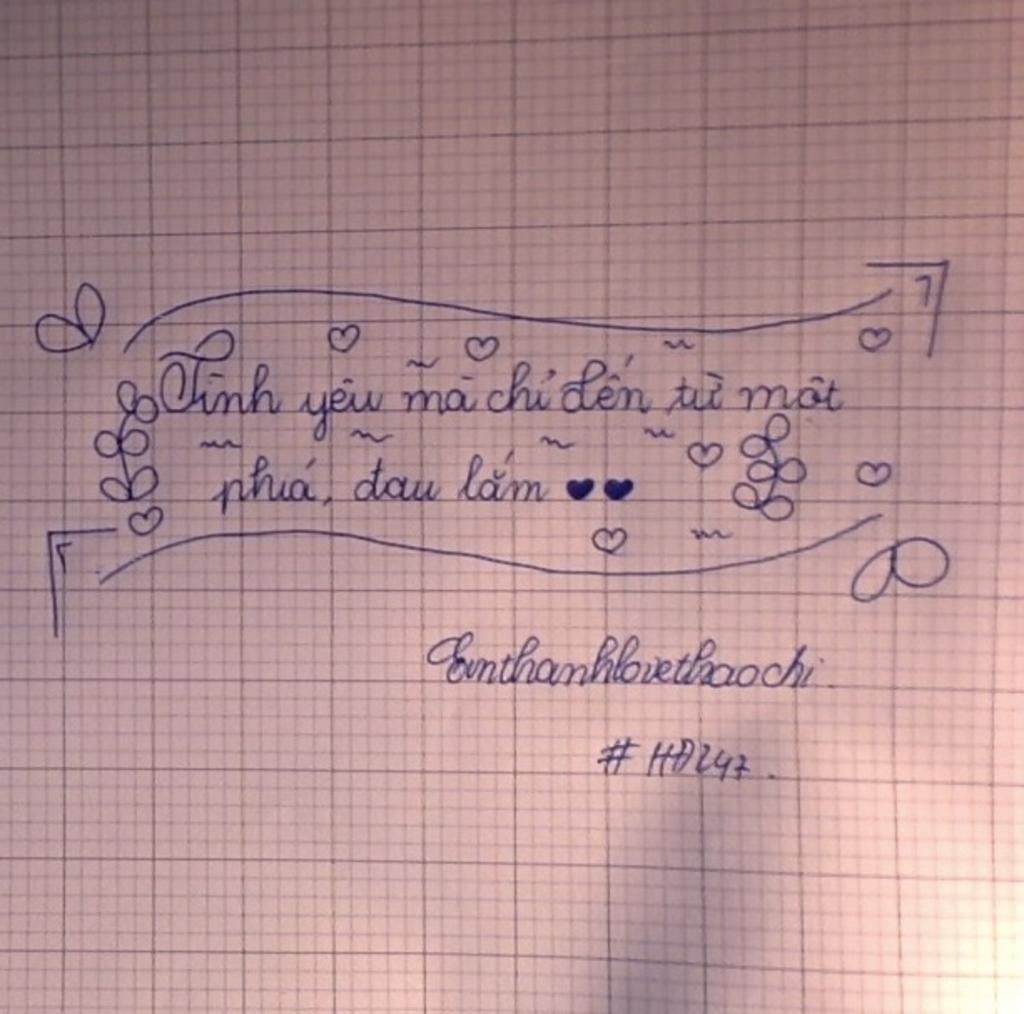 Tình yêu mà chỉ đến từ một
phiá, đau lắm ♥♥
Emthanhlovethaochi.
# HĐ247.